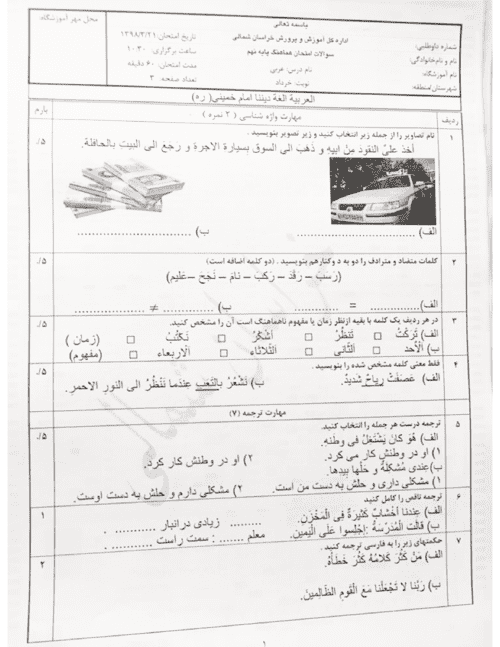 باسمه تعالی
اداره کل آموزش و پرورش خراسان شمالی
سوالات امتحان هماهنگ پایه نهم
نام درس: عربی
نوبت: خرداد
شماره داوطلبی:
نام و نام‌خانوادگی:
نام آموزشگاه:
شهرستان/منطقه:
تاریخ امتحان: ۱۳۹۸/۳/۲۱
ساعت برگزاری: ۱۰:۳۰
مدت امتحان: ۶۰ دقیقه
تعداد صفحه: ۳
محل مهر آموزشگاه:
العربیة الغة دیننا امام خمینی( ره)
ردیف
مهارت واژه شناسی ( ۲ نمره )
بارم
۱ نام تصاویر را از جمله زیر انتخاب کنید و زیر تصویر بنویسید . ۰/۵
أخذ علیٌ النقود مِنْ ابیه و ذَهبَ الی السوق بسیارة الاجرة و رَجعَ الی البیت بالحافلة.
الف) .................... ب) ....................
۲ کلمات متضاد و مترادف را دو به دو کنارهم بنویسید . (دو کلمه اضافه است) ۰/۵
(رَسَبَ – رَقَدَ – رَکَبَ – نامَ – نَجَحَ – عَلیم)
الف)............ = ............ ب)............ ≠ ............
۳ در هر ردیف یک کلمه با بقیه ازنظر زمان یا مفهوم ناهماهنگ است آن را مشخص کنید. ۰/۵
الف) تَرَکْتُ □ تَنظُرُ □ أشکُرُ □ نَکتُبُ □ (زمان )
ب) الْأحد □ الثّانی □ الثُّلاثاء □ الْاربعاء □ (مفهوم)
۴ فقط معنی کلمه مشخص شده را بنویسید . ۰/۵
الف) عصَفَتْ ریاحٌ شدیدٌ. ب) نَشْعُرُ بِالتَّعَبِ عِندَما نَنْظُرُ الی النور الاحمر.
مهارت ترجمه (۷)
۵ ترجمه درست هر جمله را انتخاب کنید. ۰/۵
الف) هُوَ کانَ یَشْتَغِلُ فی وطنِه.
۱) او در وطنش کار می کرد. ۲) او در وطنش کار کرد.
ب)عِندی مُشکلةٌ و حَلُّها بِیدِها.
۱) مشکلی داری و حلش به دست من است. ۲) مشکلی دارم و حلش به دست اوست.
۶ ترجمه ناقص را کامل کنید ۱
الف) عِندَنا أخْشابٌ کَثیرَةٌ فِی الْمَخْزَنِ. ........ زیادی درانبار ........... .
ب) قالَتِ الْمُدَرِّسَةُ :اِجْلِسوا عَلَی الْیَمینِ. معلم ....... : سمت راست ........... .
۷ حکمتهای زیر را به فارسی ترجمه کنید . ۲
الف) مَنْ کَثُرَ کَلامُهُ کَثُرَ خَطَأُهُ.
ب) رَبَّنا لا تَجْعَلْنا مَعَ الْقَومِ الظّالِمینَ.
۱